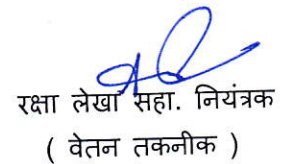 रक्षा लेखा सहा. नियंत्रक
( वेतन तकनीक )